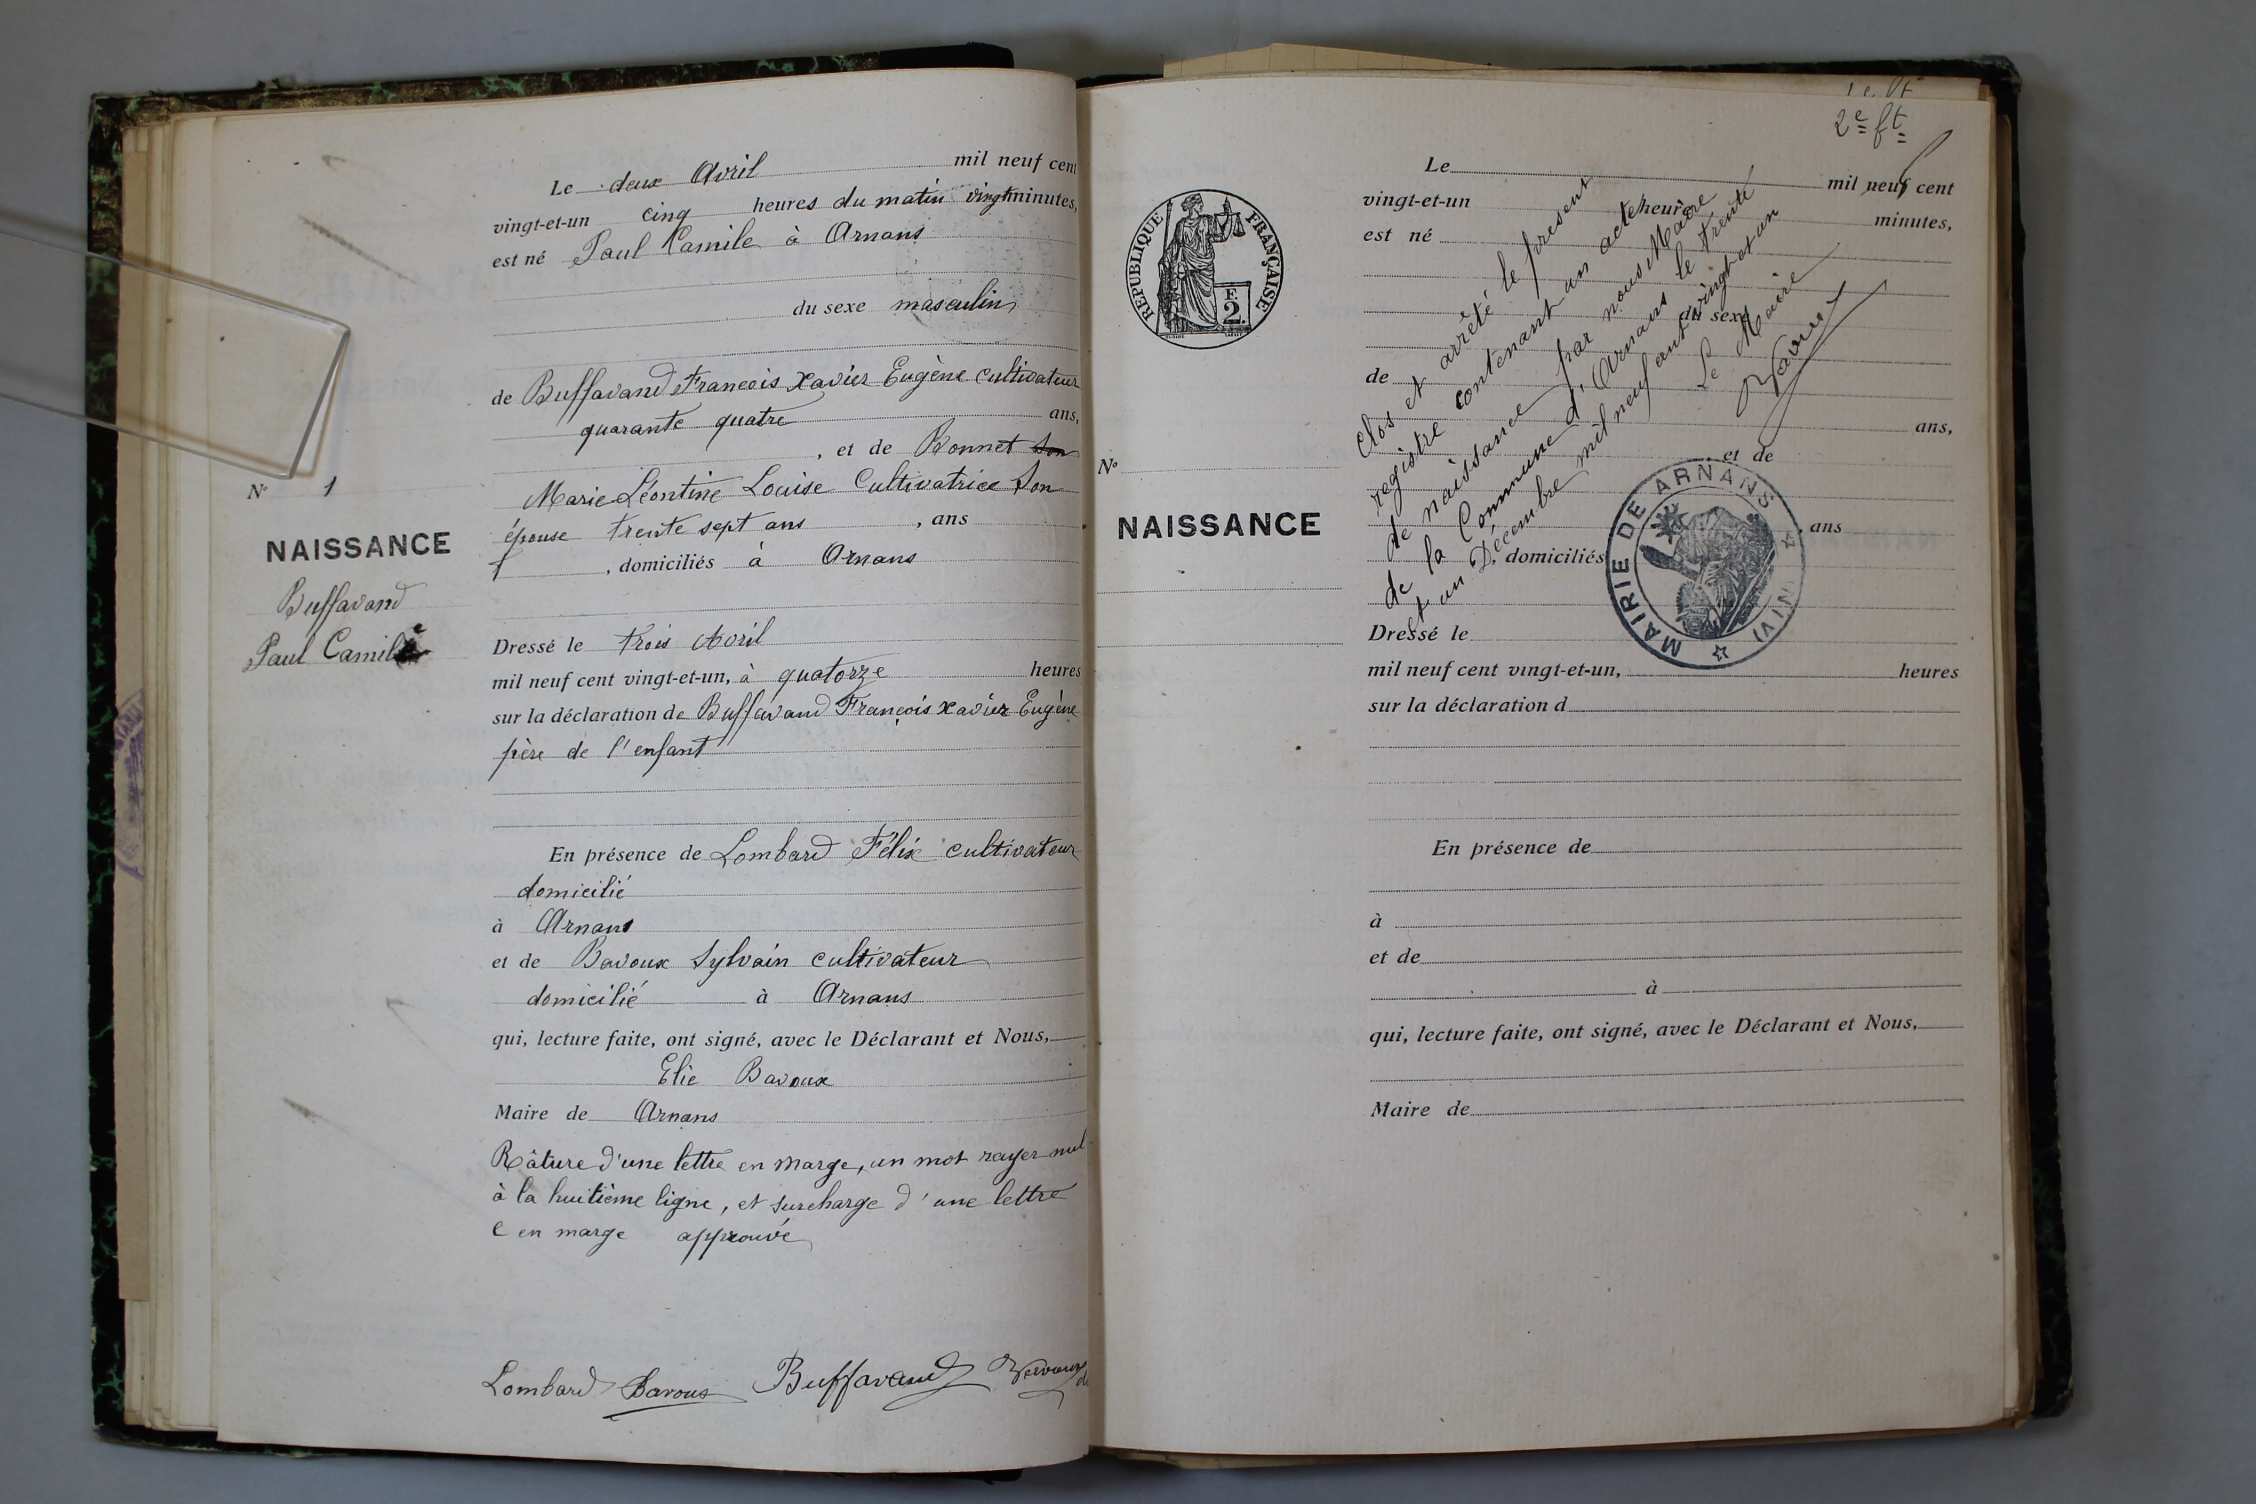 Le deux Avril mil neuf cent
vingt-et-un cinq heures du matin vingt minutes,
est né Paul Camile à Arnans
du sexe masculin
de Buffavand Francois Xavier Eugène cultivateur
quarante quatre ans,
, et de Bonnet son
Marie Léontine Louise Cultivatrice Son
épouse trente sept ans , ans
, domiciliés à Arnans
N° 1
NAISSANCE
Buffavand
Paul Camile
Dressé le trois Avril
mil neuf cent vingt-et-un, à quatorze heures
sur la déclaration de Buffavand François Xavier Eugène
père de l'enfant
En présence de Lombard Félix cultivateur
domicilié
à Arnans
et de Bavoux Sylvain cultivateur
domicilié à Arnans
qui, lecture faite, ont signé, avec le Déclarant et Nous,
Elie Bavoux
Maire de Arnans
Râture d'une lettre en marge, un mot rayer nul
à la huitième ligne, et surcharge d'une lettre
e en marge approuvé
Lombard Bavoux Buffavand Bavoux
2e ft
RÉPUBLIQUE FRANÇAISE
F.
2.
Le mil neuf cent
vingt-et-un heures minutes,
est né
du sexe
de
ans,
, et de
, ans
, domiciliés
N°
NAISSANCE
Clos et arrêté le présent
registre contenant un acte
de naissance par nous Maire
de la Commune d'Arnans le trente
et un Décembre mil neuf cent vingt et un
Le Maire
Bavoux
MAIRIE DE ARNANS
(AIN)
Dressé le
mil neuf cent vingt-et-un, heures
sur la déclaration d
En présence de
à
et de
à
qui, lecture faite, ont signé, avec le Déclarant et Nous,
Maire de